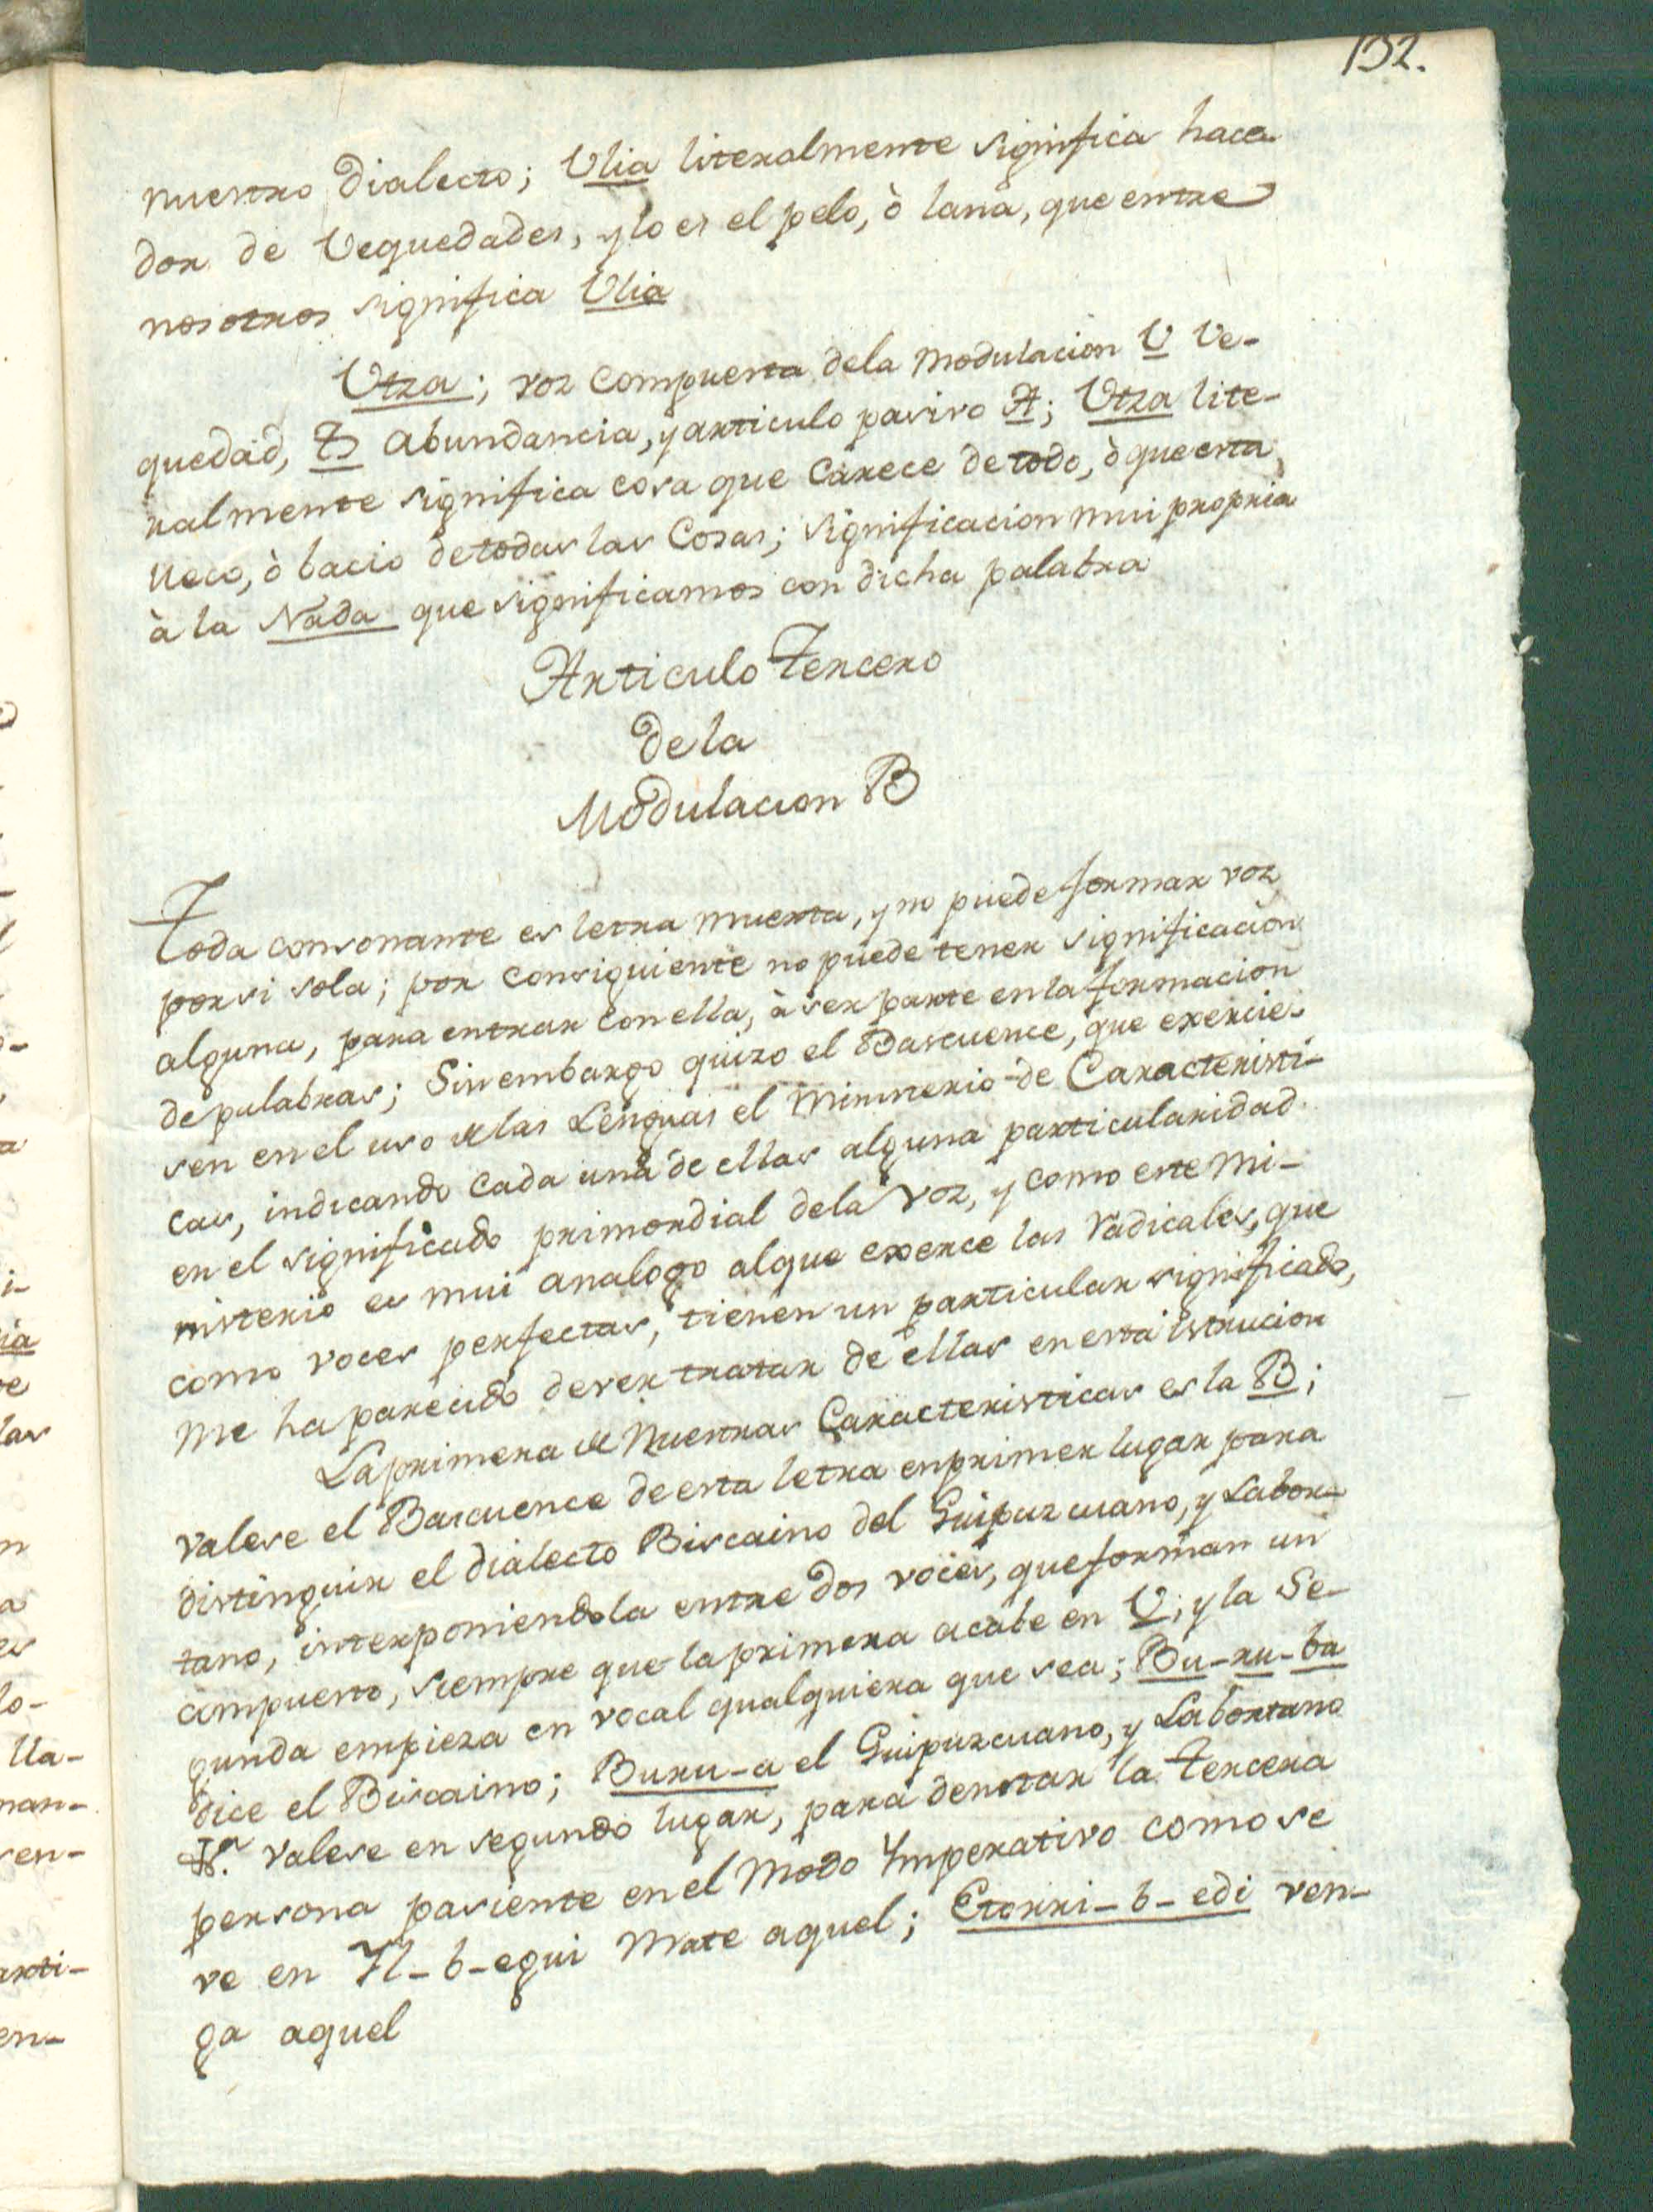 132.
nuestro Dialecto; Ulia literalmente significa hace-
dor de Uequedades, y lo es el pelo, ò lana, que entre
nosotros significa Ulia
Utza; voz compuesta dela modulacion U Ue-
quedad, Tz abundancia, y articulo pasivo A; Utza lite-
ralmente significa cosa que carece de todo, ò que esta
ueco, ò bacio de todas las Cosas; significacion mui propria
à la Nada que significamos con dicha palabra
Articulo Tercero
de la
Modulacion B
Toda consonante es letra muerta, y no puede formar voz
por si sola; por consiguiente no puede tener significacion
alguna, para entrar con ella, à ser parte en la formacion
de palabras; Sin embargo quizo el Bascuence, que exercie-
sen en el uso de las Lenguas el Ministerio de Caracteristi-
cas, indicando cada una de ellas alguna particularidad
en el significado primordial dela voz, y como este mi-
nisterio es mui analogo al que exerce las radicales, que
como voces perfectas, tienen un particular significado,
me ha parecido dever tratar de ellas en esta istrucion
La primera de Nuestras Caracteristicas es la B;
valese el Bascuence de esta letra en primer lugar para
distinguir el dialecto Biscaino del Guipuzcuano, y Labor-
tano, interponiendola entre dos voces, que forman un
compuesto, siempre que la primera acabe en U; y la Se-
gunda empieza en vocal qualquiera que sea; Bu-ru-ba
dice el Biscaino; Buru-a el Guipuzcuano, y Labortano
Valese en segundo lugar, para denotar la tercera
persona pasiente en el Modo Imperativo como se
ve en Il-b-egui Mate aquel; Etorri-b-edi ven-
ga aquel